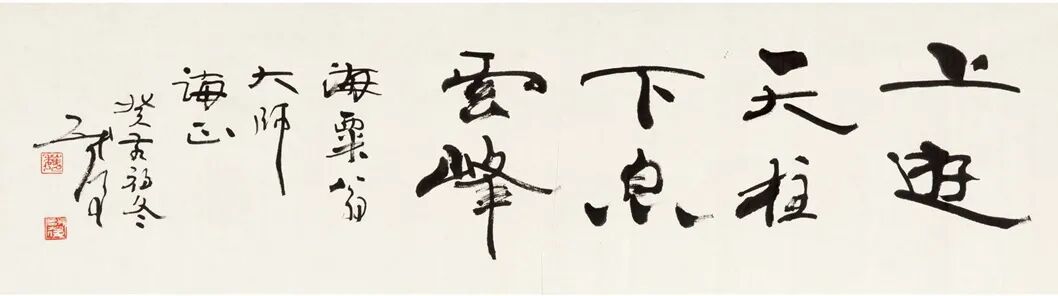 上遊
天柱
下息
雲峰
海粟翁
大師
誨正
癸初冬